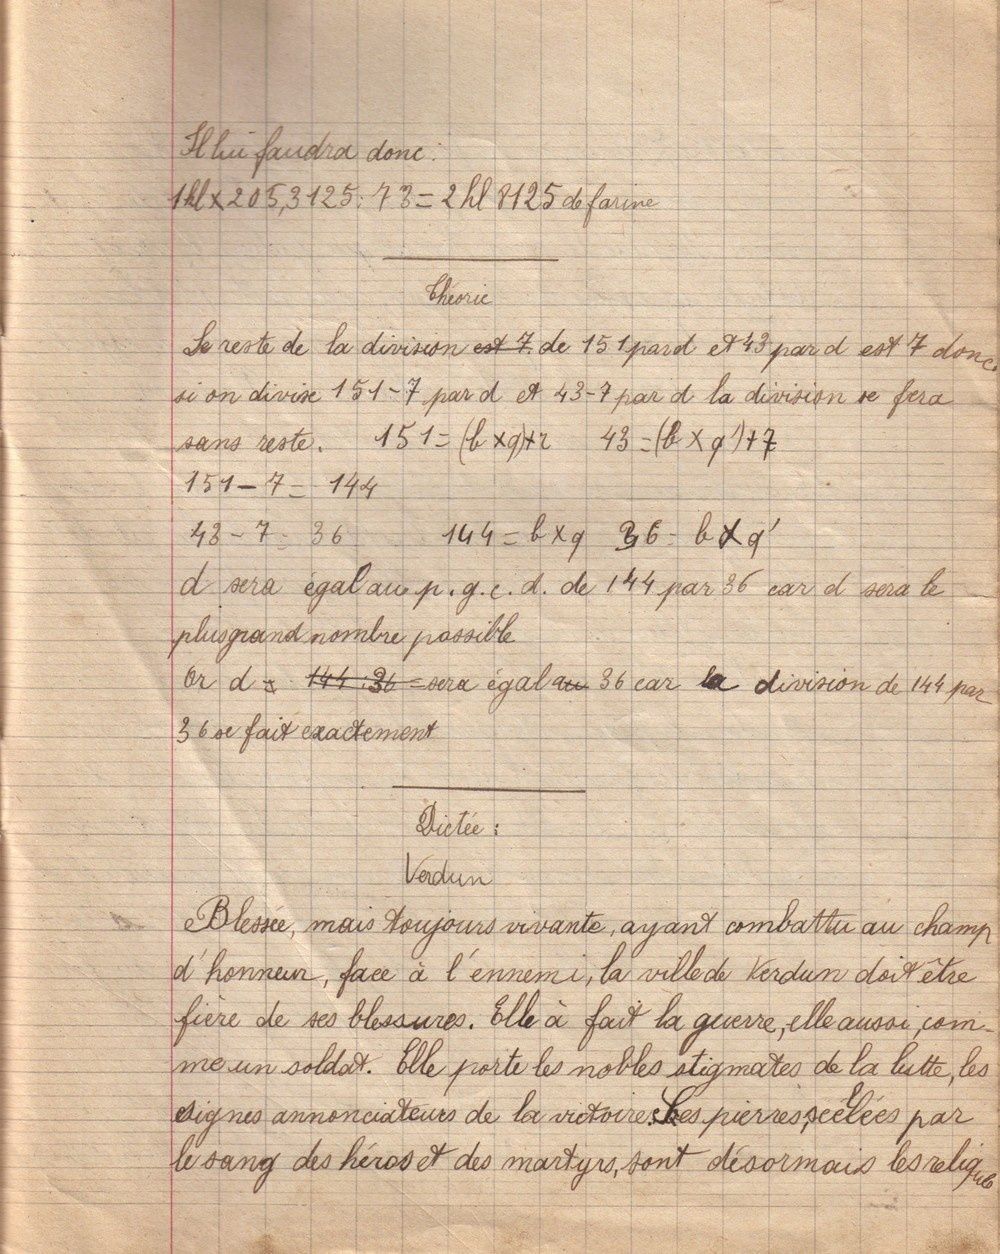 Il lui faudra donc :
1hl x 205,3125 : 73 = 2 hl 8125 de farine
Théorie
Le reste de la division est 7 de 151 par d et 43 par d est 7 donc
si on divise 151-7 par d et 43-7 par d la division se fera
sans reste. 151 = (b x q)+r 43 = (b x q')+7
151 - 7 = 144
43 - 7 = 36 144 = b x q 36 = b x q'
d sera égal au p.g.c.d. de 144 par 36 car d sera le
plus grand nombre possible
Or d = 144 : 36 = sera égal au 36 car la division de 144 par
36 se fait exactement
Dictée :
Verdun
Blessée, mais toujours vivante, ayant combattu au champ
d'honneur, face à l'ennemi, la ville de Verdun doit être
fière de ses blessures. Elle à fait la guerre, elle aussi, com-
me un soldat. Elle porte les nobles stigmates de la lutte, les
signes annonciateurs de la victoire. Les pierres, scélées par
le sang des héros et des martyrs, sont désormais les relique